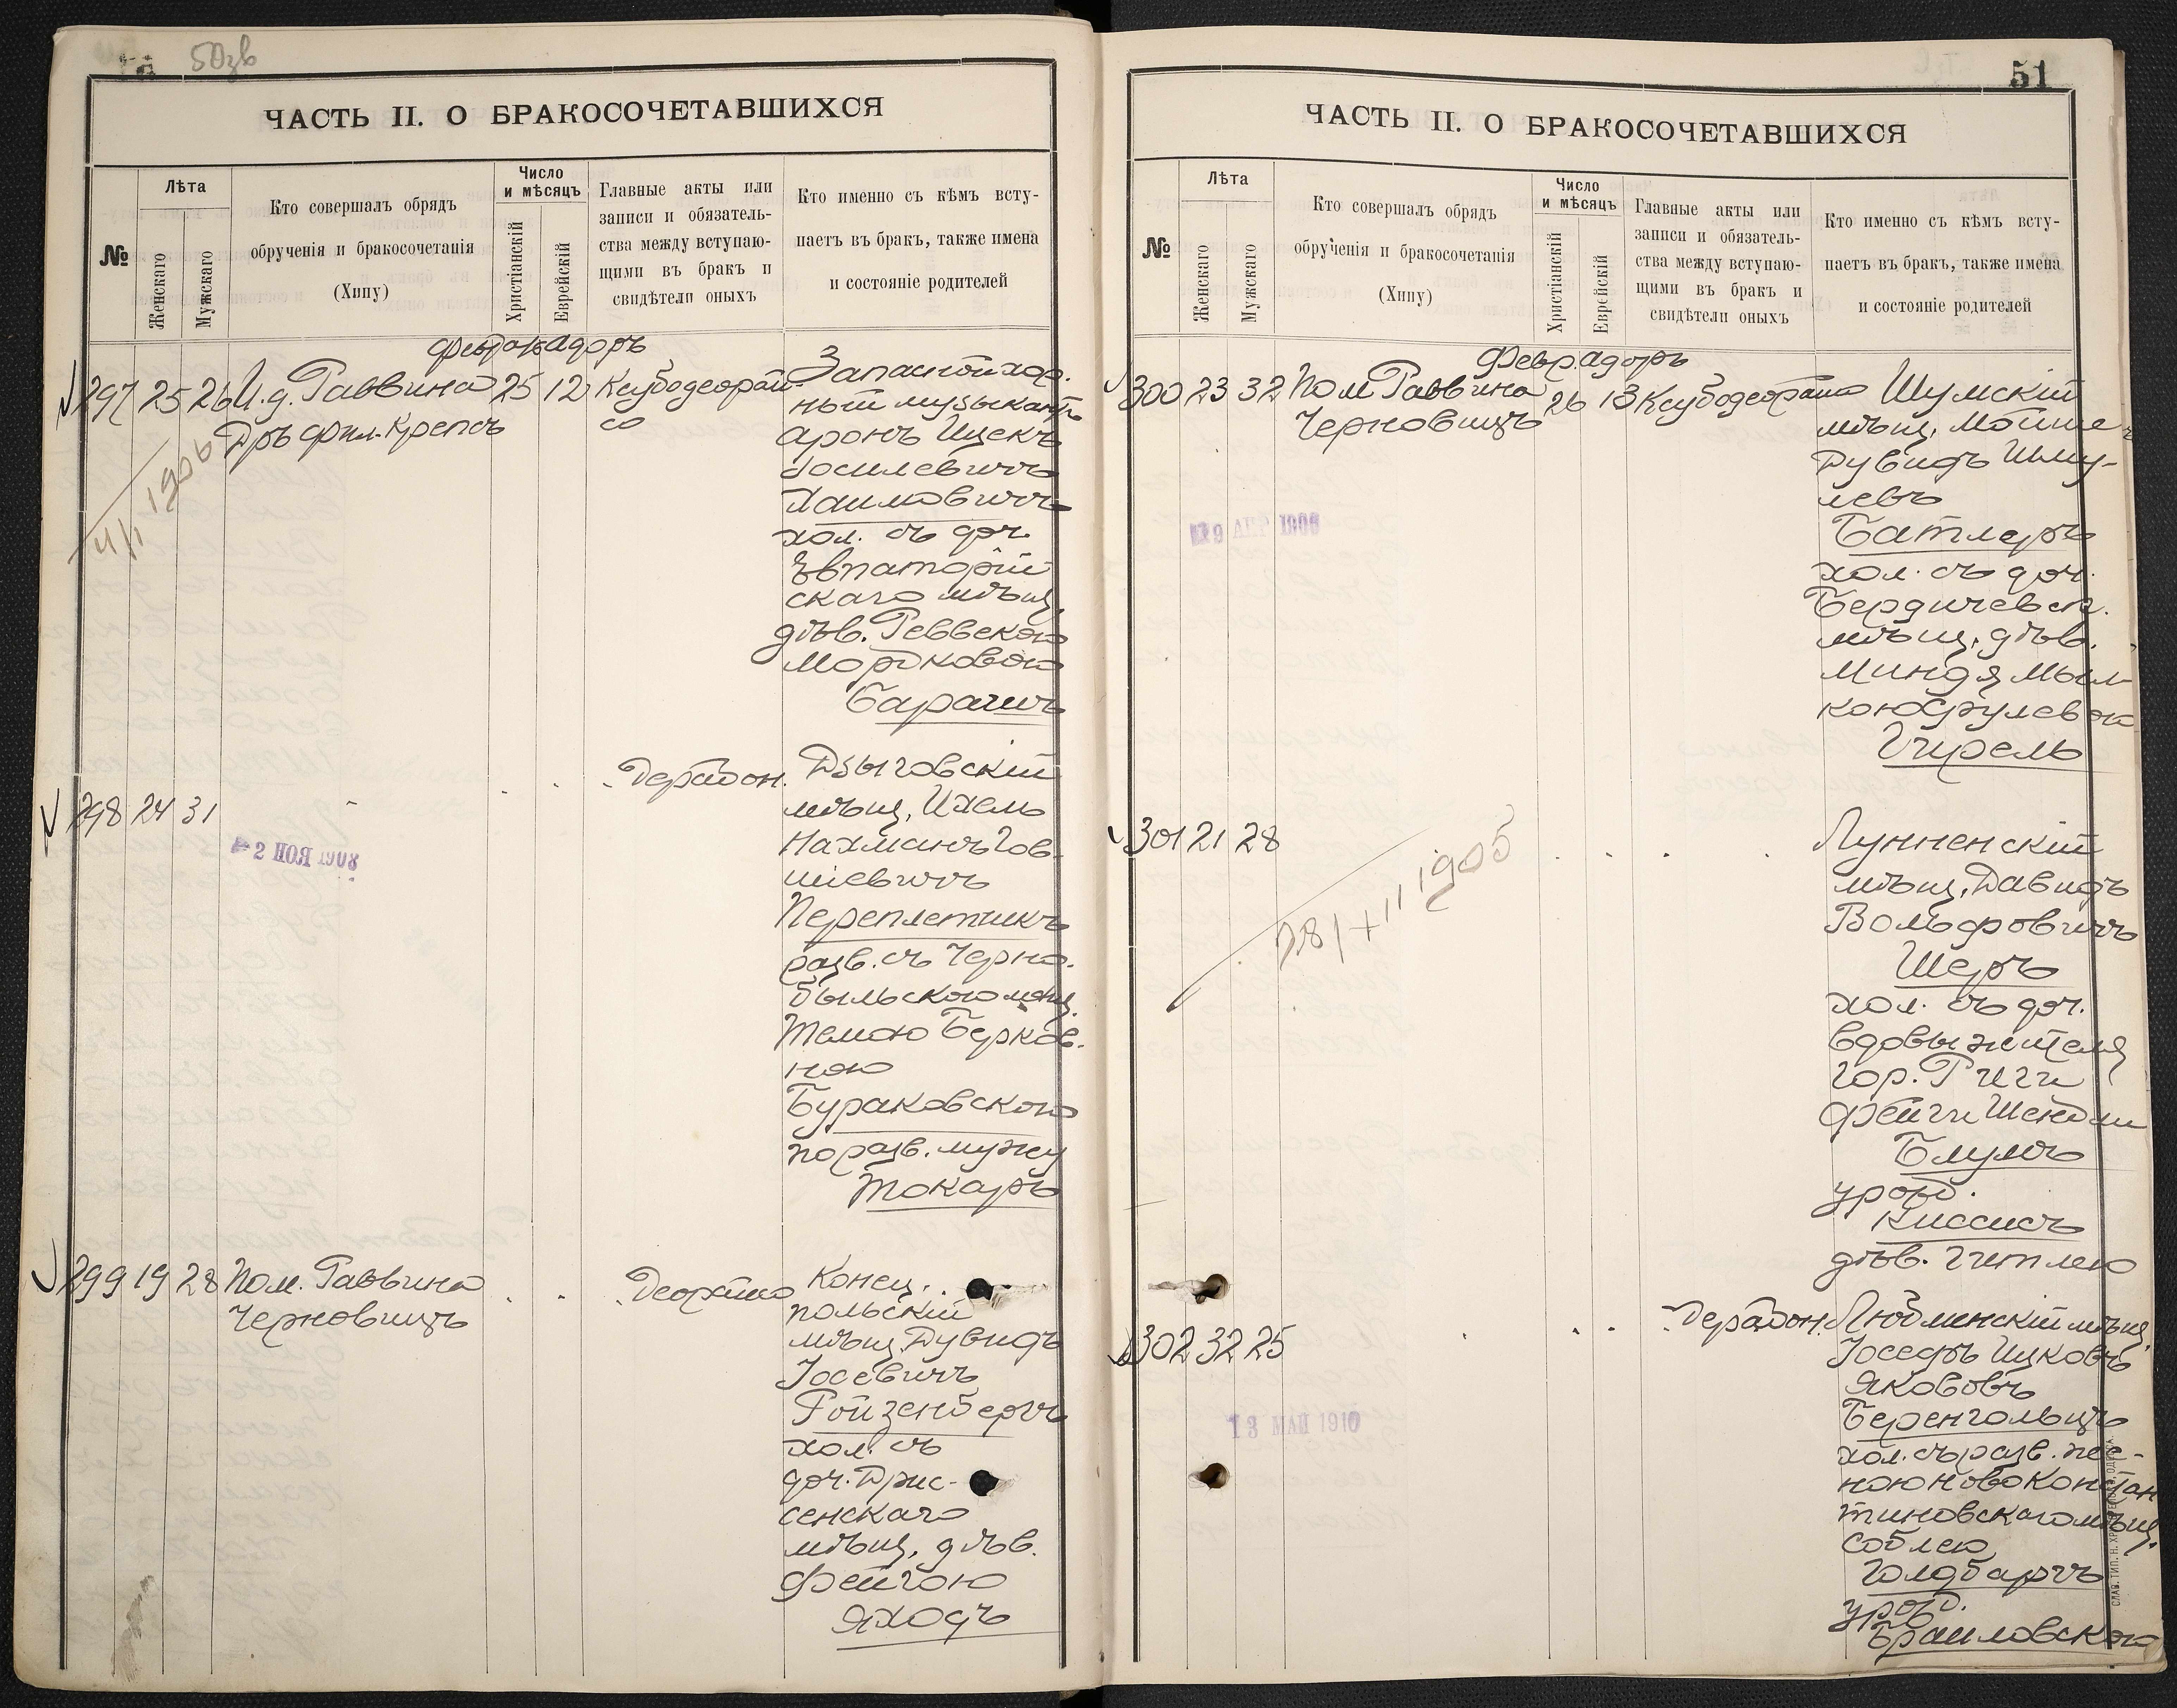 50зв
ЧАСТЬ II. О БРАКОСОЧЕТАВШИХСЯ
№
Лѣта
Женскаго
Мужскаго
Кто совершалъ обрядъ
обрученія и бракосочетанія
(Хипу)
Число
и мѣсяцъ
Христіанскій
Еврейскій
Главные акты или
записи и обязатель-
ства между вступаю-
щими въ бракъ и
свидѣтели оныхъ
Кто именно съ кѣмъ всту-
паетъ въ бракъ, также имена
и состояніе родителей
297 25 26 И. д. Раввина 25 12
Дръ фил. Крепсъ
4/I 1906
Запасной хор.
ный музыкантъ
Аронъ Ицекъ
Іосилевичъ
Хаимовичъ
хол. съ доч.
Евпаторій
скаго мѣщ.
дѣв. Реввекою
Мордковою
Барачъ
298 24 31
2 НОЯ 1908
Дерабон.
Дзыговскій
мѣщ. Ихель
Нахманъ Гов-
шіевичъ
Переплетчикъ
разв. съ Черно-
быльскою мѣщ.
Темою Берков-
ною
Бураковскою
по разв. мужу
Токаръ
299 19 28 Пом. Раввина
Черновицъ
Деорайсо
Конец-
польскій
мѣщ. Дувидъ
Іосевичъ
Ройзенбергъ
хол. съ
доч. Дрис-
сенскаго
мѣщ. дѣв.
Фейгою
Яходъ
51
ЧАСТЬ II. О БРАКОСОЧЕТАВШИХСЯ
№
Лѣта
Женскаго
Мужскаго
Кто совершалъ обрядъ
обрученія и бракосочетанія
(Хипу)
Число
и мѣсяцъ
Христіанскій
Еврейскій
Главные акты или
записи и обязатель-
ства между вступаю-
щими въ бракъ и
свидѣтели оныхъ
Кто именно съ кѣмъ всту-
паетъ въ бракъ, также имена
и состояніе родителей
Февр. Адоръ
300 23 32 Пом Раввина 26 13
Черновицъ
9 АПР 1906
Шумскій
мѣщ. Мойше
Дувидъ Шму-
левъ
Батлеръ
хол. съ доч.
Бердичевск.
мѣщ. дѣв.
Миндя Мыл-
кою Срулевою
Гчрель
301 21 28
28/XII 1905
Лунненскій
мѣщ. Давидъ
Вольфовичъ
Шеръ
хол. съ доч.
вдовы жителя
гор. Риги
Фейги Шендли
Блумъ
урожд.
Киссисъ
дѣв. Гитлею
302 32 25
13 МАЙ 1910
Дерабон.
Любленскій мѣщ.
Іосефъ Ицковъ
Яковъ
Беренгольцъ
хол. съ разв. же-
ною Новоконстан
тиновскаго мѣщ.
Соблею
Голдбаргъ
урожд.
Браиловскою